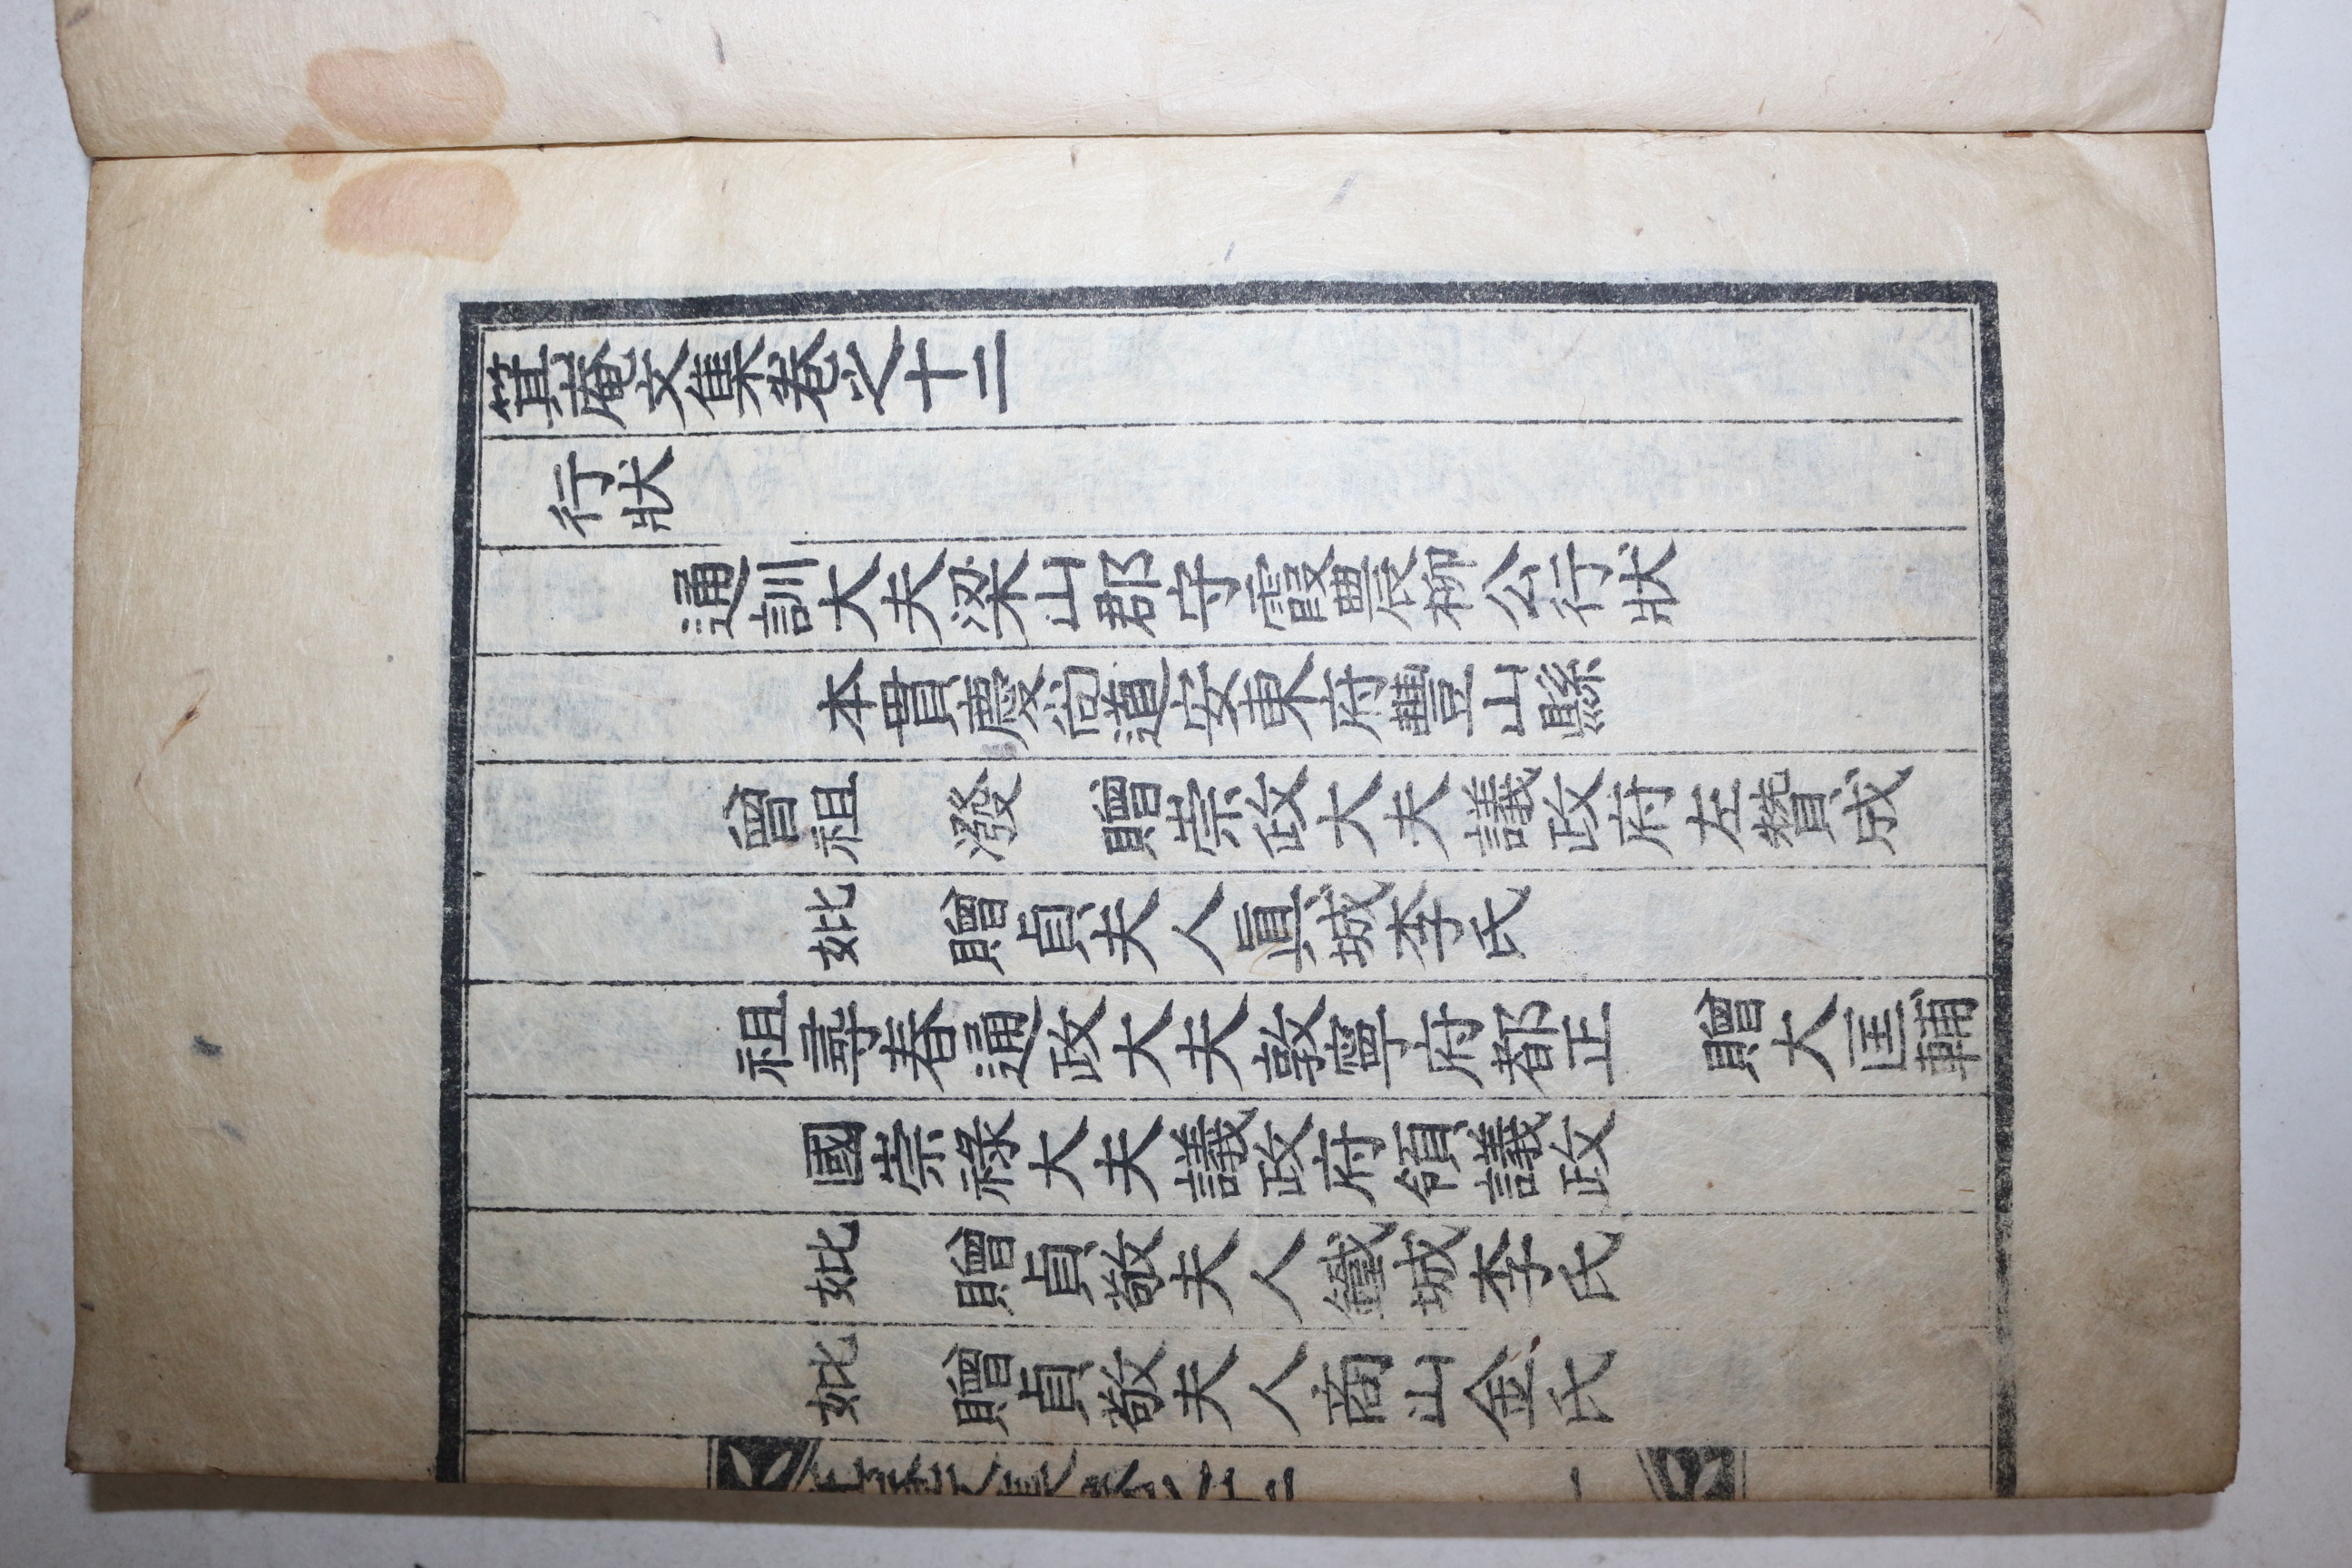 算庵文集卷之十二
行狀
通訓大夫梁山郡守霞農柳公行狀
本貫慶尙道安東府豐山縣
曾祖 潑 贈崇政大夫議政府左贊成
妣 贈貞夫人眞城李氏
祖尋春通政大夫敦寧府都正 贈大匡輔
國崇祿大夫議政府領議政
妣 贈貞敬夫人鐵城李氏
妣 贈貞敬夫人商山金氏